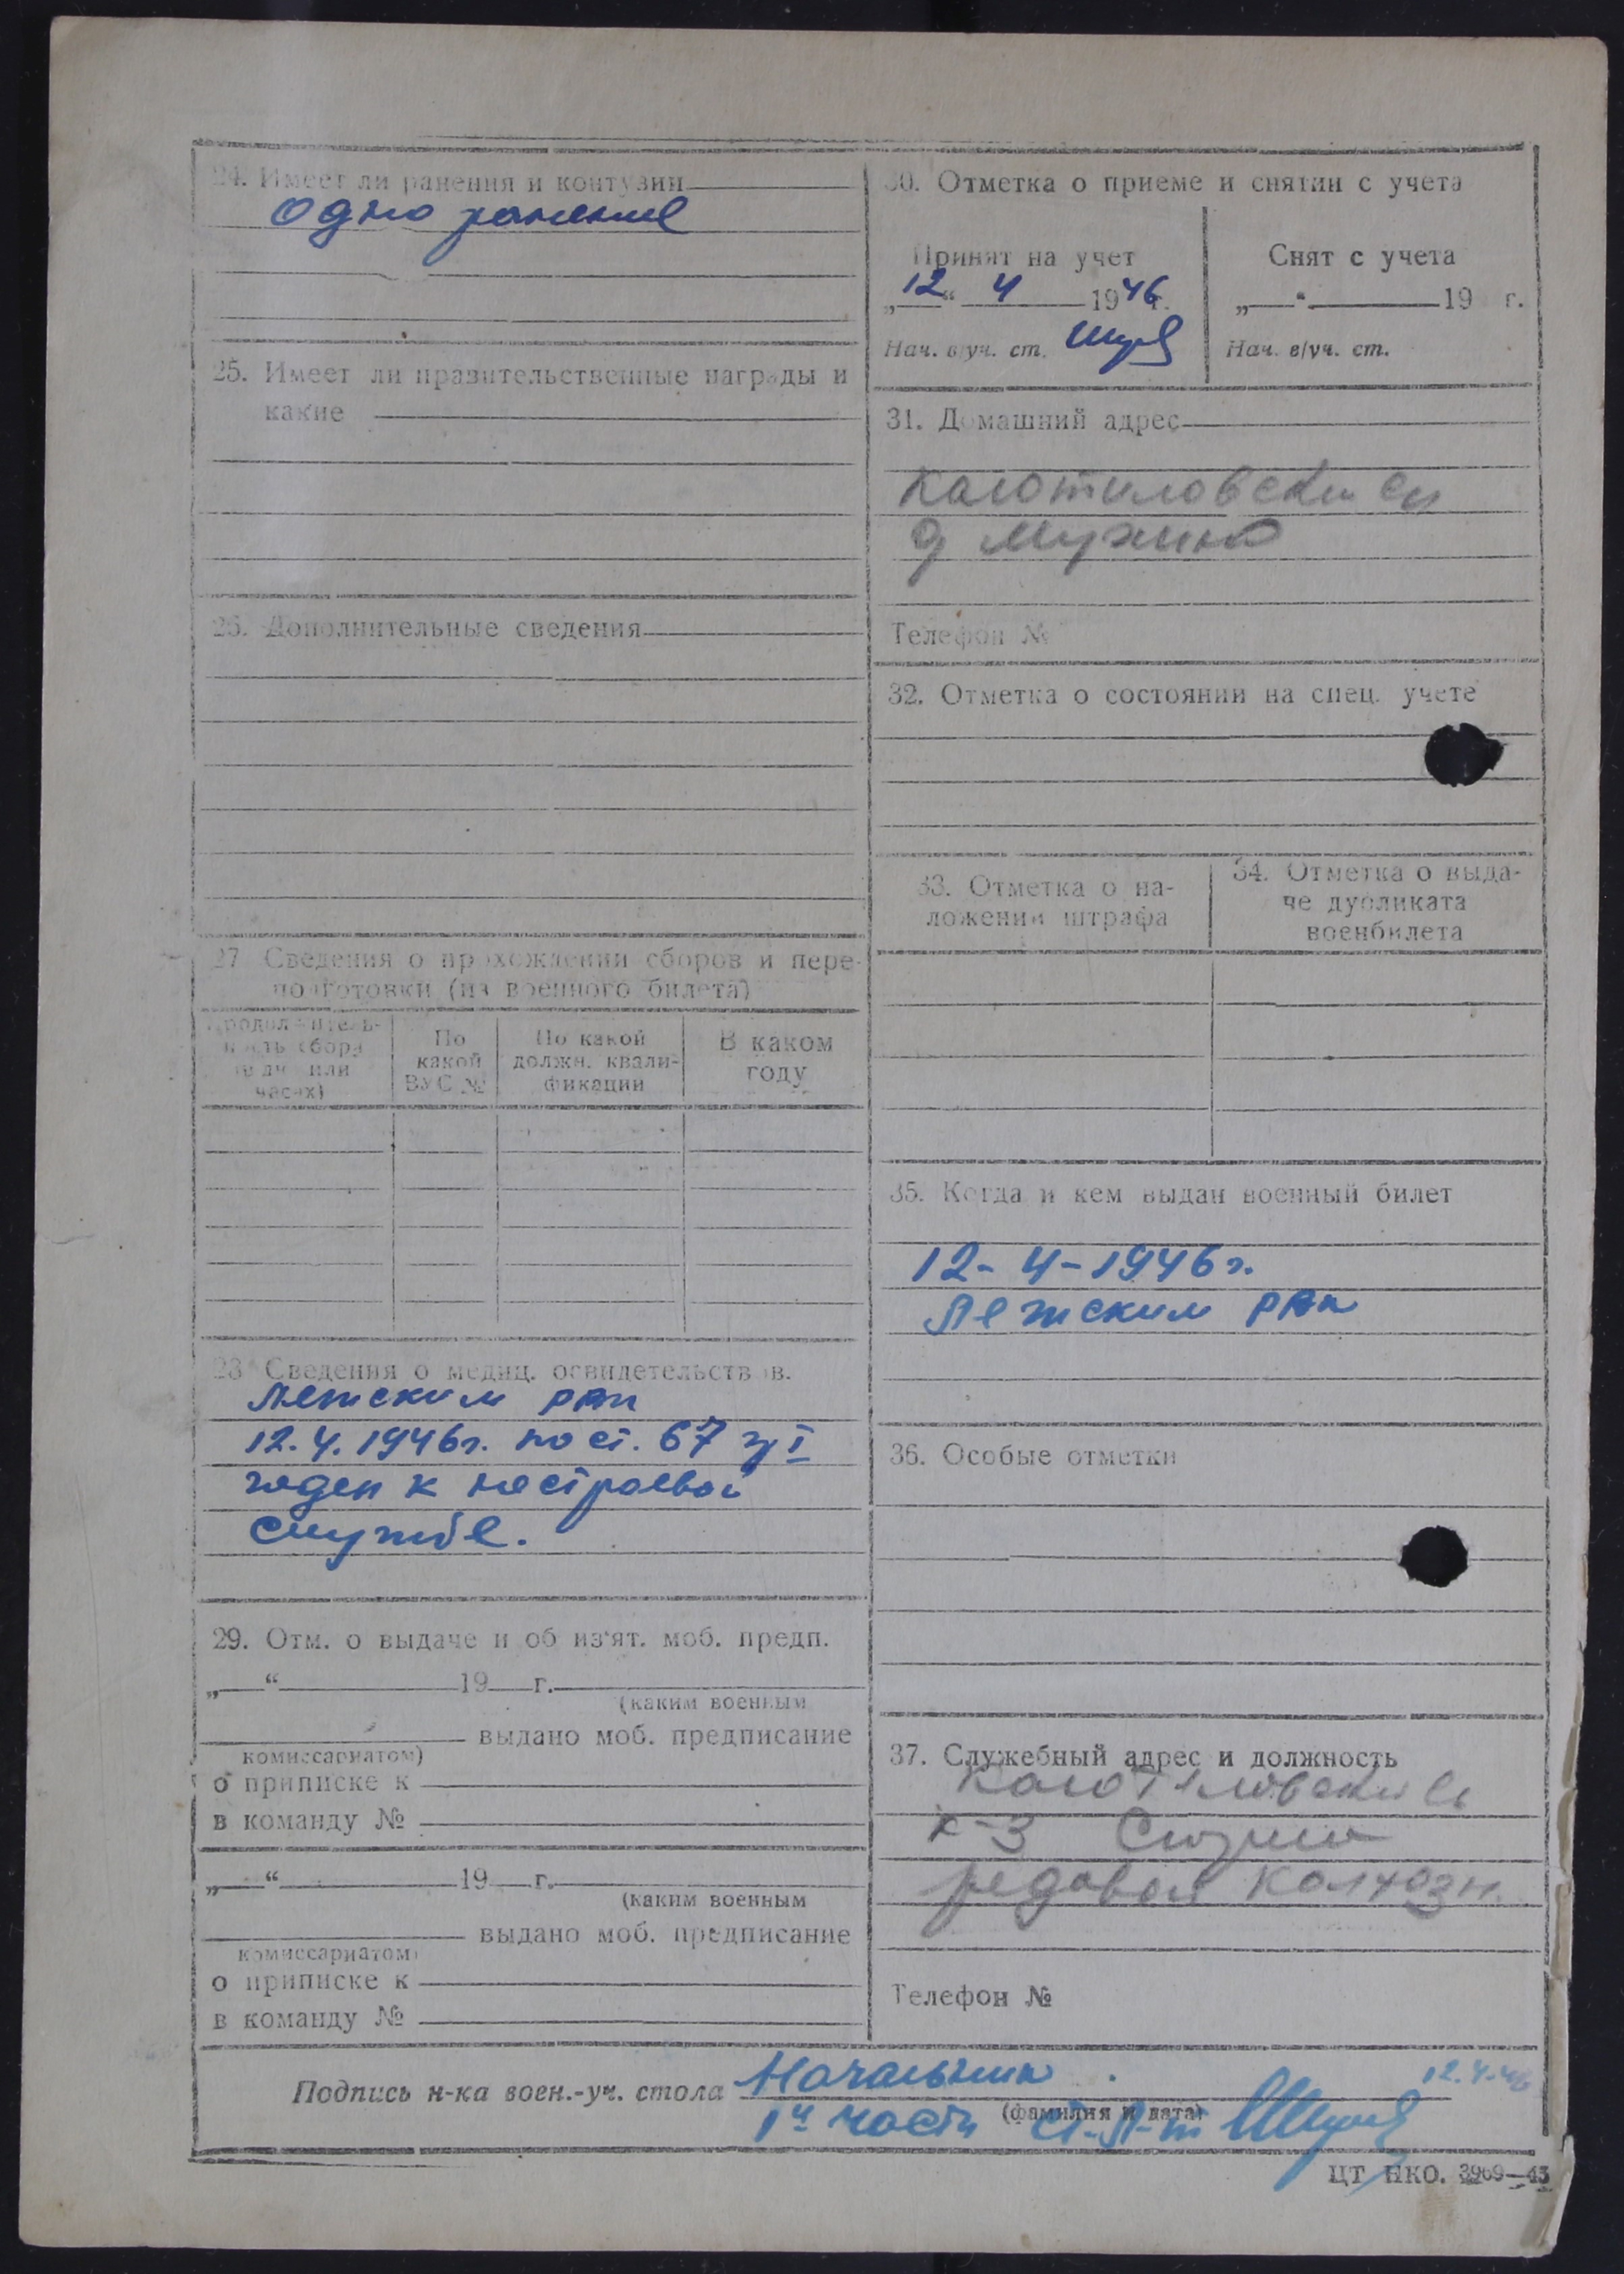 24. Имеет ли ранения и контузии
одно ранение
25. Имеет ли правительственные награды и
какие
26. Дополнительные сведения
27 Сведения о прохождении сборов и пере-
подготовки (из военного билета)
Продолжитель-
ность сбора
(в дн. или
часах)
По
какой
ВУС №
По какой
должн. квали-
фикации
В каком
году
28 Сведения о медиц. освидетельствов.
Летским РВК
12.4.1946г. по ст. 67 гр I
годен к нестроевой
службе.
29. Отм. о выдаче и об из'ят. моб. предп.
„ “ 19 г.
(каким военным
выдано моб. предписание
комиссариатом)
о приписке к
в команду №
„ “ 19 г.
(каким военным
выдано моб. предписание
комиссариатом)
о приписке к
в команду №
30. Отметка о приеме и снятии с учета
Принят на учет
„12“ 4 1946г.
Нач. в/уч. ст.
Снят с учета
„ “ 19 г.
Нач. в/уч. ст.
31. Домашний адрес
д
Телефон №
32. Отметка о состоянии на спец. учете
33. Отметка о на-
ложении штрафа
34. Отметка о выда-
че дубликата
военбилета
35. Когда и кем выдан военный билет
12-4-1946г.
Летским РВК
36. Особые отметки
37. Служебный адрес и должность
к-з
редовой колхозн.
Телефон №
Подпись н-ка воен.-уч. стола Начальник 12.4.46
(фамилия и дата)
1й части ст. л-т
ЦТ НКО. 3969—45